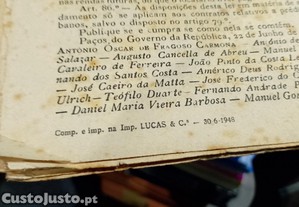 Art. 80.º — As disposições desta lei em matéria de
damento só se aplicam aos contratos relativos a prédios
banos, salvo o disposto no artigo
Publique-se e cumpra-se como nela se contém.
Paços do Governo da República, 22 de Junho
ANTÓNIO OSCAR DE FRAGOSO CARMONA — António
Salazar — Augusto Cancella de Abreu — Manuel
Cavaleiro de Ferreira — João Pinto da Costa
nando dos Santos Costa — Américo Deus Rodrig
— José Caeiro da Matta — José Frederico do
Ulrich — Teófilo Duarte — Fernando Andrade P
— Daniel Maria Vieira Barbosa — Manuel Go
Comp. e imp. na Imp. LUCAS & C.ª — 30-6-1948
CustoJusto.pt